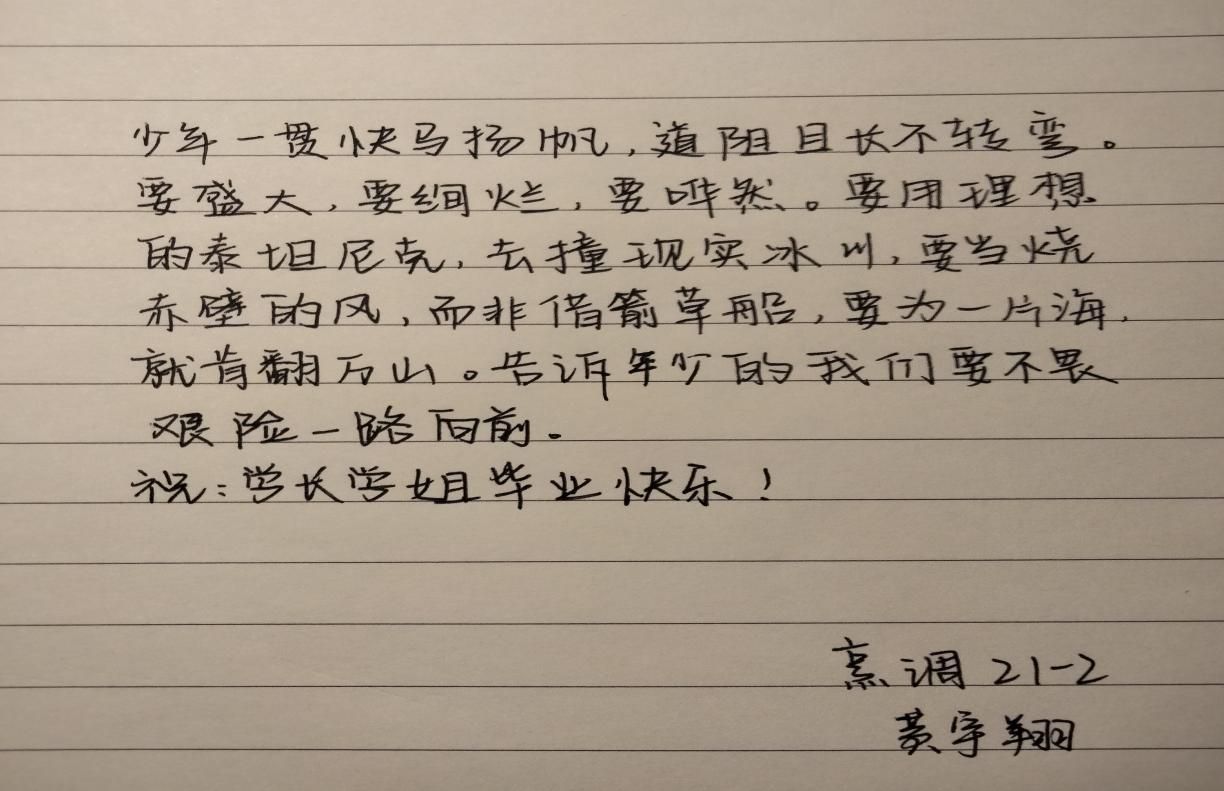 少年一贯快马扬帆，道阻且长不转弯。
要盛大，要绚烂，要哗然。要用理想
的泰坦尼克，去撞现实冰川，要当烧
赤壁的风，而非借箭草船，要为一片海，
就肯翻万山。告诉年少的我们要不畏
艰险一路向前。
祝：学长学姐毕业快乐！
烹调21-2
黄宇翔